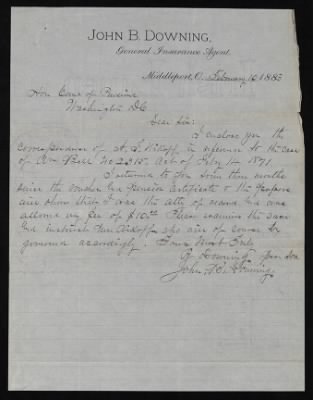 JOHN B. DOWNING,
General Insurance Agent.
Middleport, O., February 10 1883
Hon Com of Pensions
Washington DC
Dear Sir:
I enclose you the
correspondence of A. S. in reference to the case
of Wm No 2315. Act of Feby 14 1871.
I returned to you some three months
since the voucher and Pension Certificate & the papers
will show that I was the atty of record and was
allowed my fee of $10.00. Please examine the same
and instruct who will of course be
governed accordingly. Yours Most Truly
Downing per son
John B. Downing